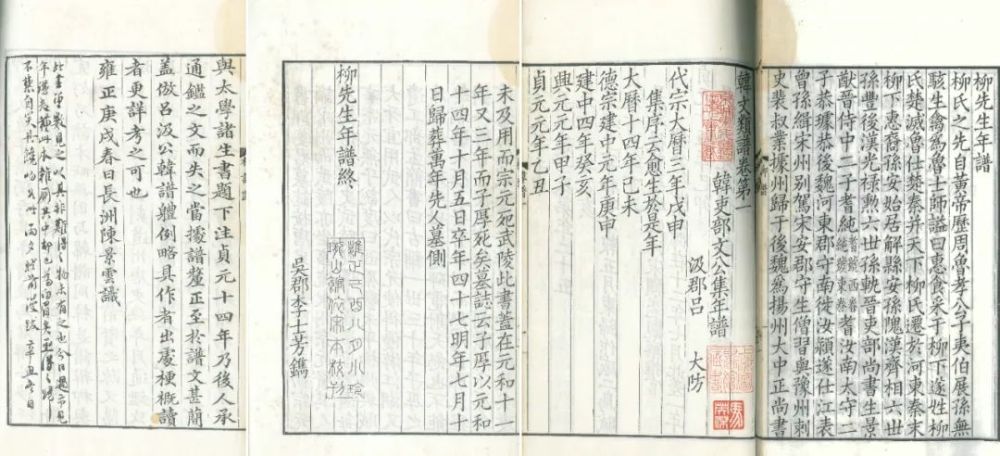 柳先生年譜
柳氏之先自黃帝歷周魯孝公子夷伯展孫無
駭生禽為魯士師謚曰惠食采于柳下遂姓柳
氏楚滅魯仕楚秦并天下柳氏遷於河東秦末
柳下惠裔孫安始居解縣安孫隗漢齊相六世
孫豐後漢光祿勲六世孫軌晉吏部尚書生景
猷晉侍中二子耆純耆汝南太守二
子恭璩恭後魏河東郡守南徙汝潁遂仕江表
曾孫緝宋州别駕宋安郡守生僧習與豫州刺
史裴叔業據州歸于後魏為揚州大中正尚書
韓文類譜卷第一
韓吏部文公集年譜
汲郡呂 大防
代宗大曆三年戊申
集序云愈生於是年
大曆十四年己未
德宗建中元年庚申
建中四年癸亥
興元元年甲子
貞元元年乙丑
未及用而宗元死武陵此書蓋在元和十一
年又三年而子厚死矣墓誌云子厚以元和
十四年十月五日卒年四十七明年七月十
日歸葬萬年先人墓側
柳先生年譜終
吳郡李士芳鐫
與太學諸生書題下注貞元十四年乃後人承
通鑑之文而失之當據譜釐正至於譜文甚簡
蓋倣呂汲公韓譜體例略具作者出處梗概讀
者更詳考之可也
雍正庚戌春日長洲陳景雲識